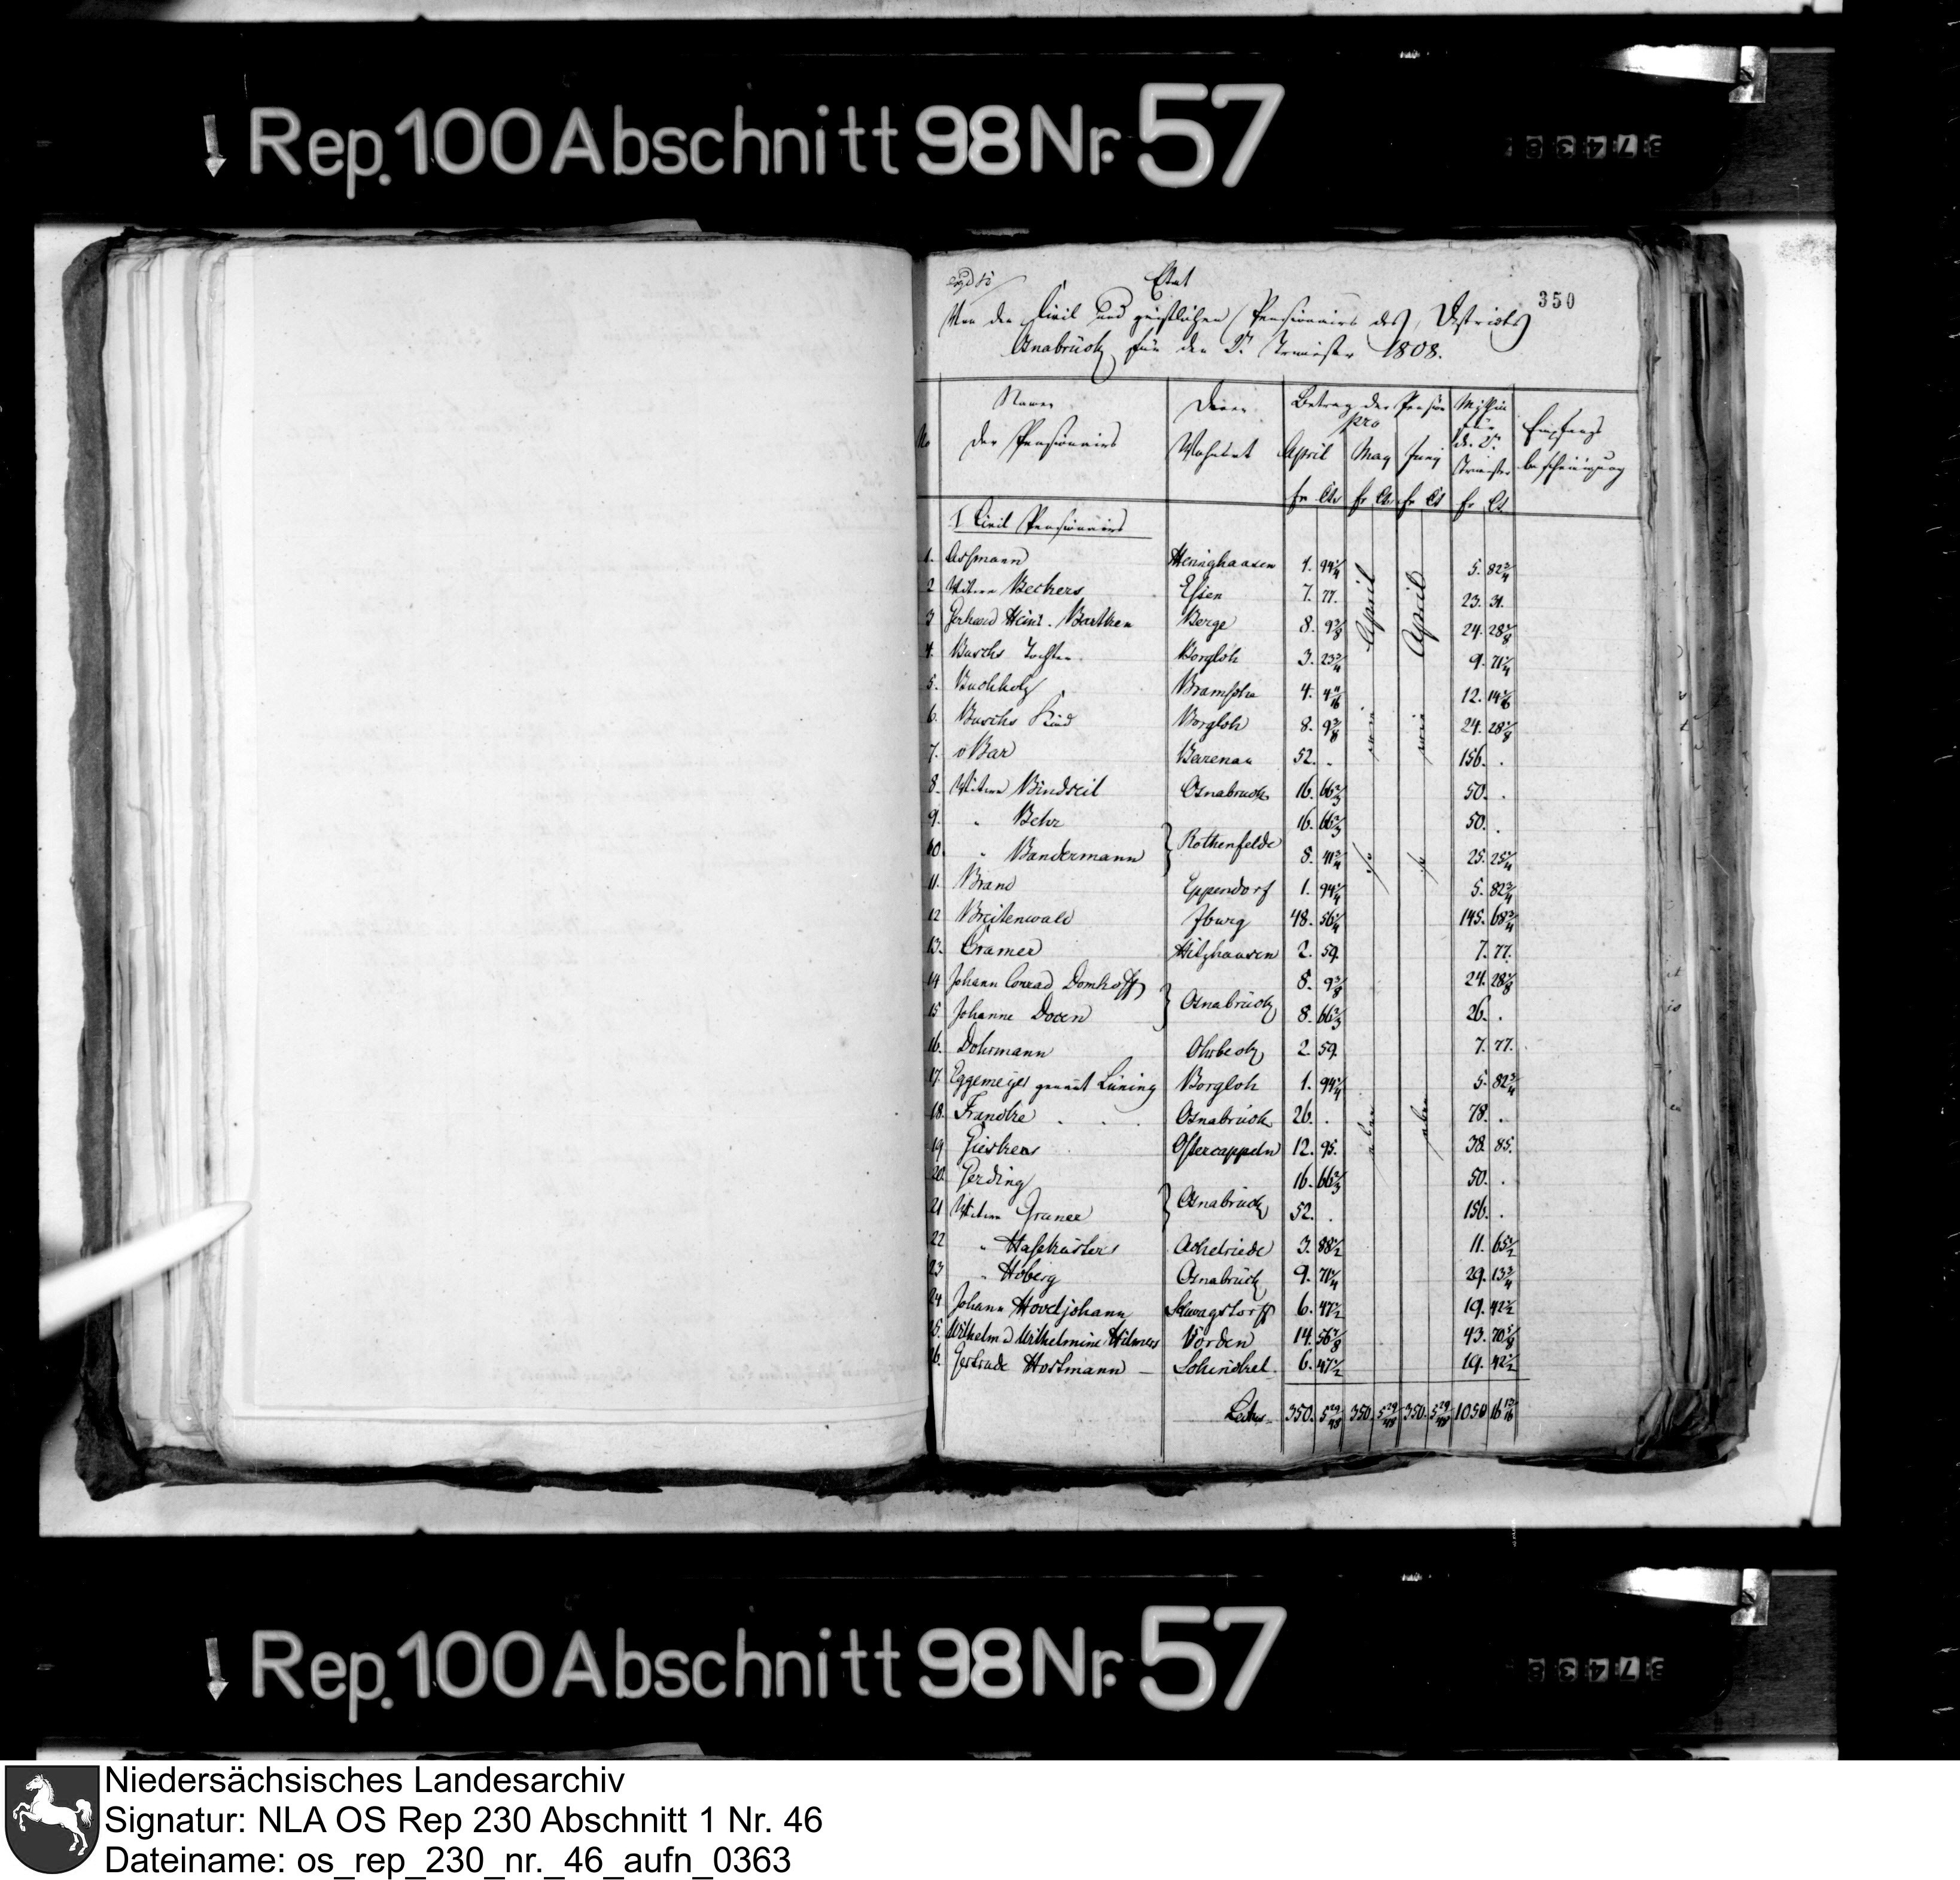 Rep. 100 Abschnitt 98 Nr. 57
350
Etat
Von den Civil und geistlichen Pensionairs des Districts
Osnabrück für den 2n Trimester 1808.
No Namen der Pensionairs Deren Wohnort Betrag der Pension pro April May Juny Mithin für den 2n Trimester Empfangs bescheinigung
fr Cts fr Cts fr Cts fr Cts
I Civil Pensionairs
1. Assmann 1. 94 1/4 5. 82 3/4
2 Witwe Beckers Essen 7. 77. 23. 31.
3 Gerhard Heinr. Barthen Berge 8. 9 3/8 24. 28 1/8
4. Buschs Tochter Borgloh 3. 23 3/4 9. 71 1/4
5. Buchholz Bramsche 4. 12.
6. Buschs Kind Borgloh 8. 9 3/8 24. 28 1/8
7. v Bar Barenau 52. . 156. .
8. Witwe Bindseil Osnabruck 16. 66 2/3 50. .
9. " Behr 16. 66 2/3 50. .
10. " Bandermann Rothenfelde 8. 41 3/4 25. 25 1/4
11. Brand Eppendorf 1. 94 1/4 5. 82 3/4
12 Breitenwald Iburg 48. 56 1/4 145. 68 3/4
13. Cramer Hilzhausen 2. 59. 7. 77.
14 Johann Conrad Domhoff 8. 9 3/8 24. 28 1/8
15 Johanne Doren Osnabrück 8. 66 2/3 26. .
16. Dohrmann Ohrbeck 2. 59. 7. 77.
17. Eggemeyer genannt Lüning Borgloh 1. 94 1/4 5. 82 3/4
18. Francke Osnabrück 26. . 78. .
19 Gieskers Ostercappeln 12. 95. 38. 85.
20. Gerding 16. 66 2/3 50. .
21 Witwe Gruner Osnabrück 52. . 156. .
22 " Achelriede 3. 88 1/2 11. 65 1/2
23 " Hoberg Osnabrück 9. 71 1/4 29. 13 3/4
24 Johann Hoveljohann Schwagstorff 6. 47 1/2 19. 42 1/2
25. Wilhelm u Wilhelmine Hilmers Vörden 14. 56 7/8 43. 70 5/8
26. Gertrude Horstmann Schinckel 6. 47 1/2 19. 42 1/2
April April
wie wie
Latus 350. 5 29/48 350. 5 29/48 350. 5 29/48 1050 16 13/16
Rep. 100 Abschnitt 98 Nr. 57
Niedersächsisches Landesarchiv
Signatur: NLA OS Rep 230 Abschnitt 1 Nr. 46
Dateiname: os_rep_230_nr._46_aufn_0363